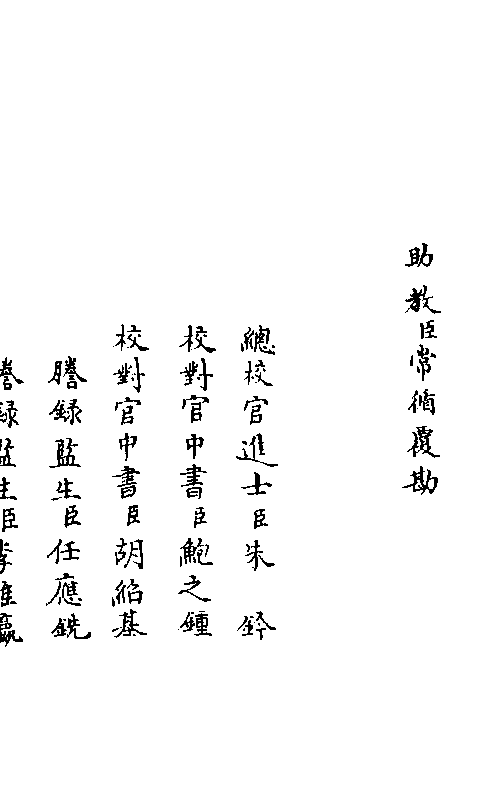 助教臣常循覆勘
總校官進士臣朱鈐
校對官中書臣鮑之鍾
校對官中書臣胡紹基
謄錄監生臣任應銑
謄錄監生臣李維